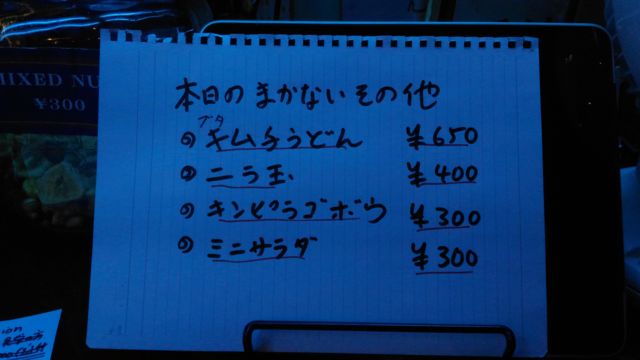 MIXED NU
¥300
本日のまかないその他
ブタ
キムチうどん ¥650
ニラ玉 ¥400
キンピラゴボウ ¥300
ミニサラダ ¥300